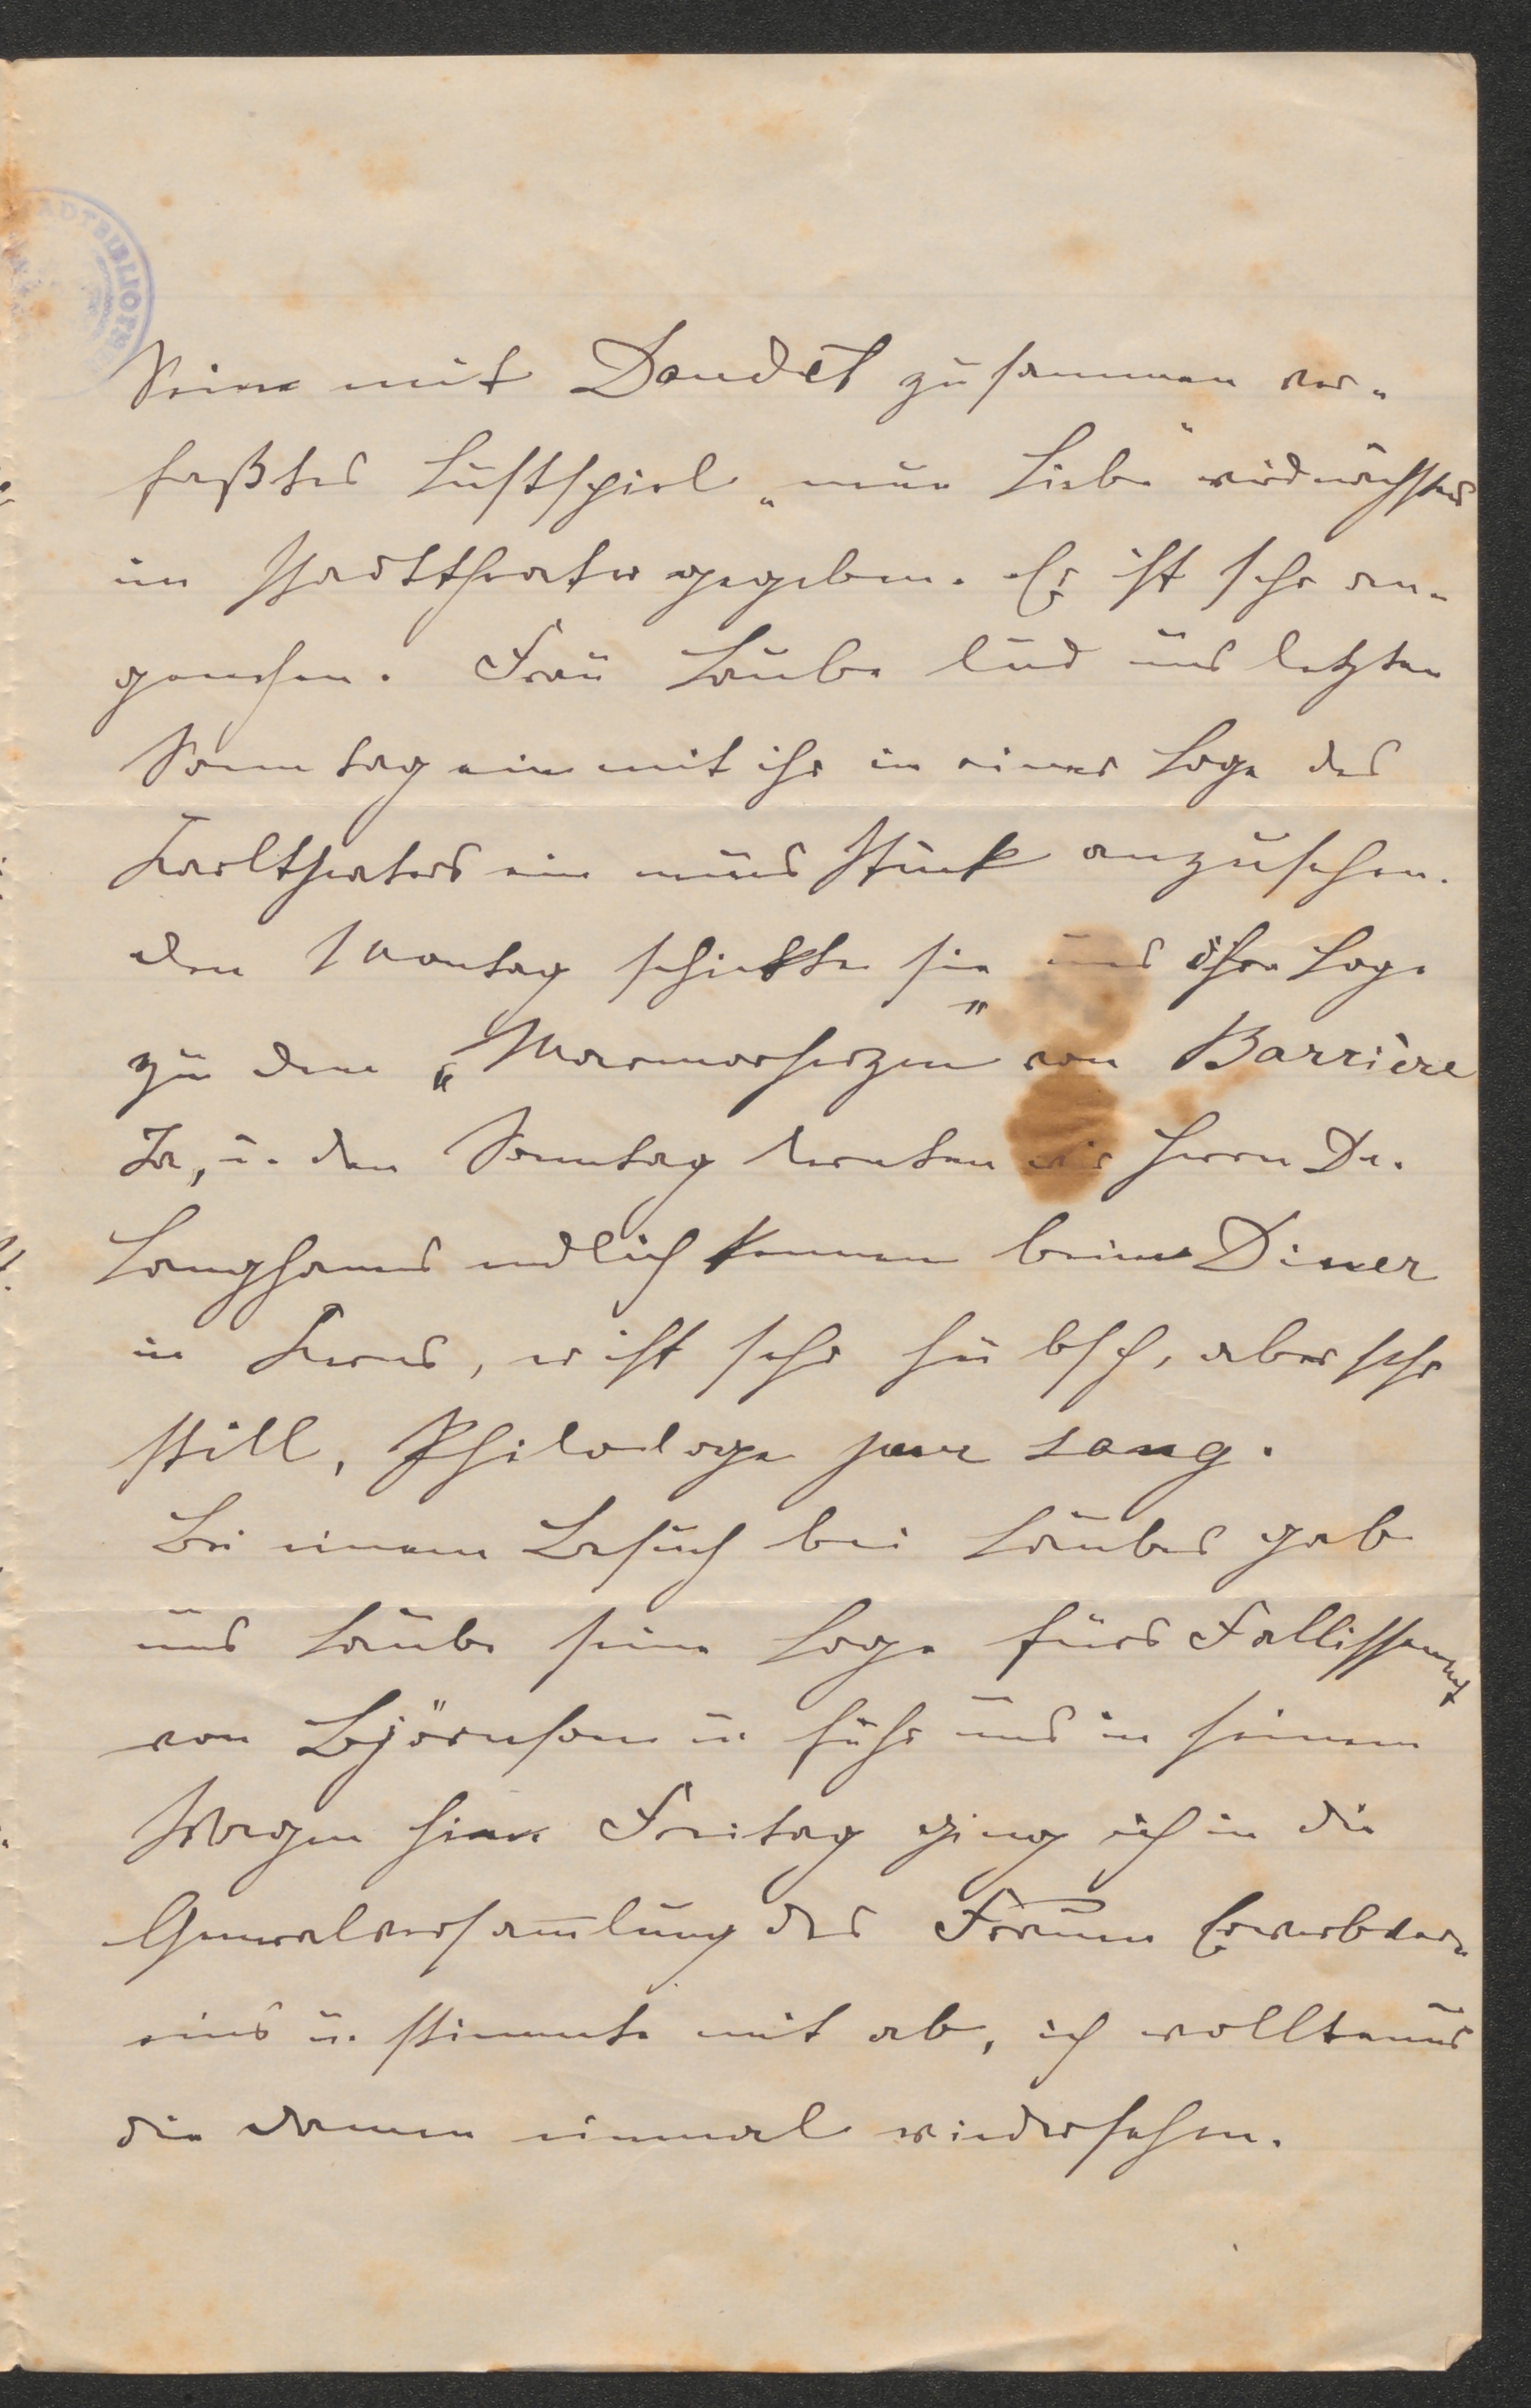 Seine mit Daudet zusammen ver-
faßtes Lustspiel „neue Liebe“ wird nächstens
im Stadttheater gegeben. Er ist sehr an-
genehm. Frau Laube lud uns letzten
Sonntag ein mit ihr in einer Loge des
Karltheaters ein neues Stück anzusehen.
den Montag schickte sie uns ihre Loge
zu den „Marmorherzen“ von Barrière
Ja, u. den Sonntag lernten wir Herrn Dr.
Langhans endlich kennen beim Diner
in, er ist sehr hübsch, aber sehr
still, Philologe pur sang.
Bei einem Besuch bei Laubes gab
uns Laube seine Loge fürs Fallissement
von Björnson u. fuhr uns in seinem
Wagen hin. Freitag ging ich in die
Generalversam̅lung des Frauen Erwerbver-
eins u. stimmte mit ab, ich wollte nur
die Damen einmal wiedersehen.
STADTBIBLIOTHEK